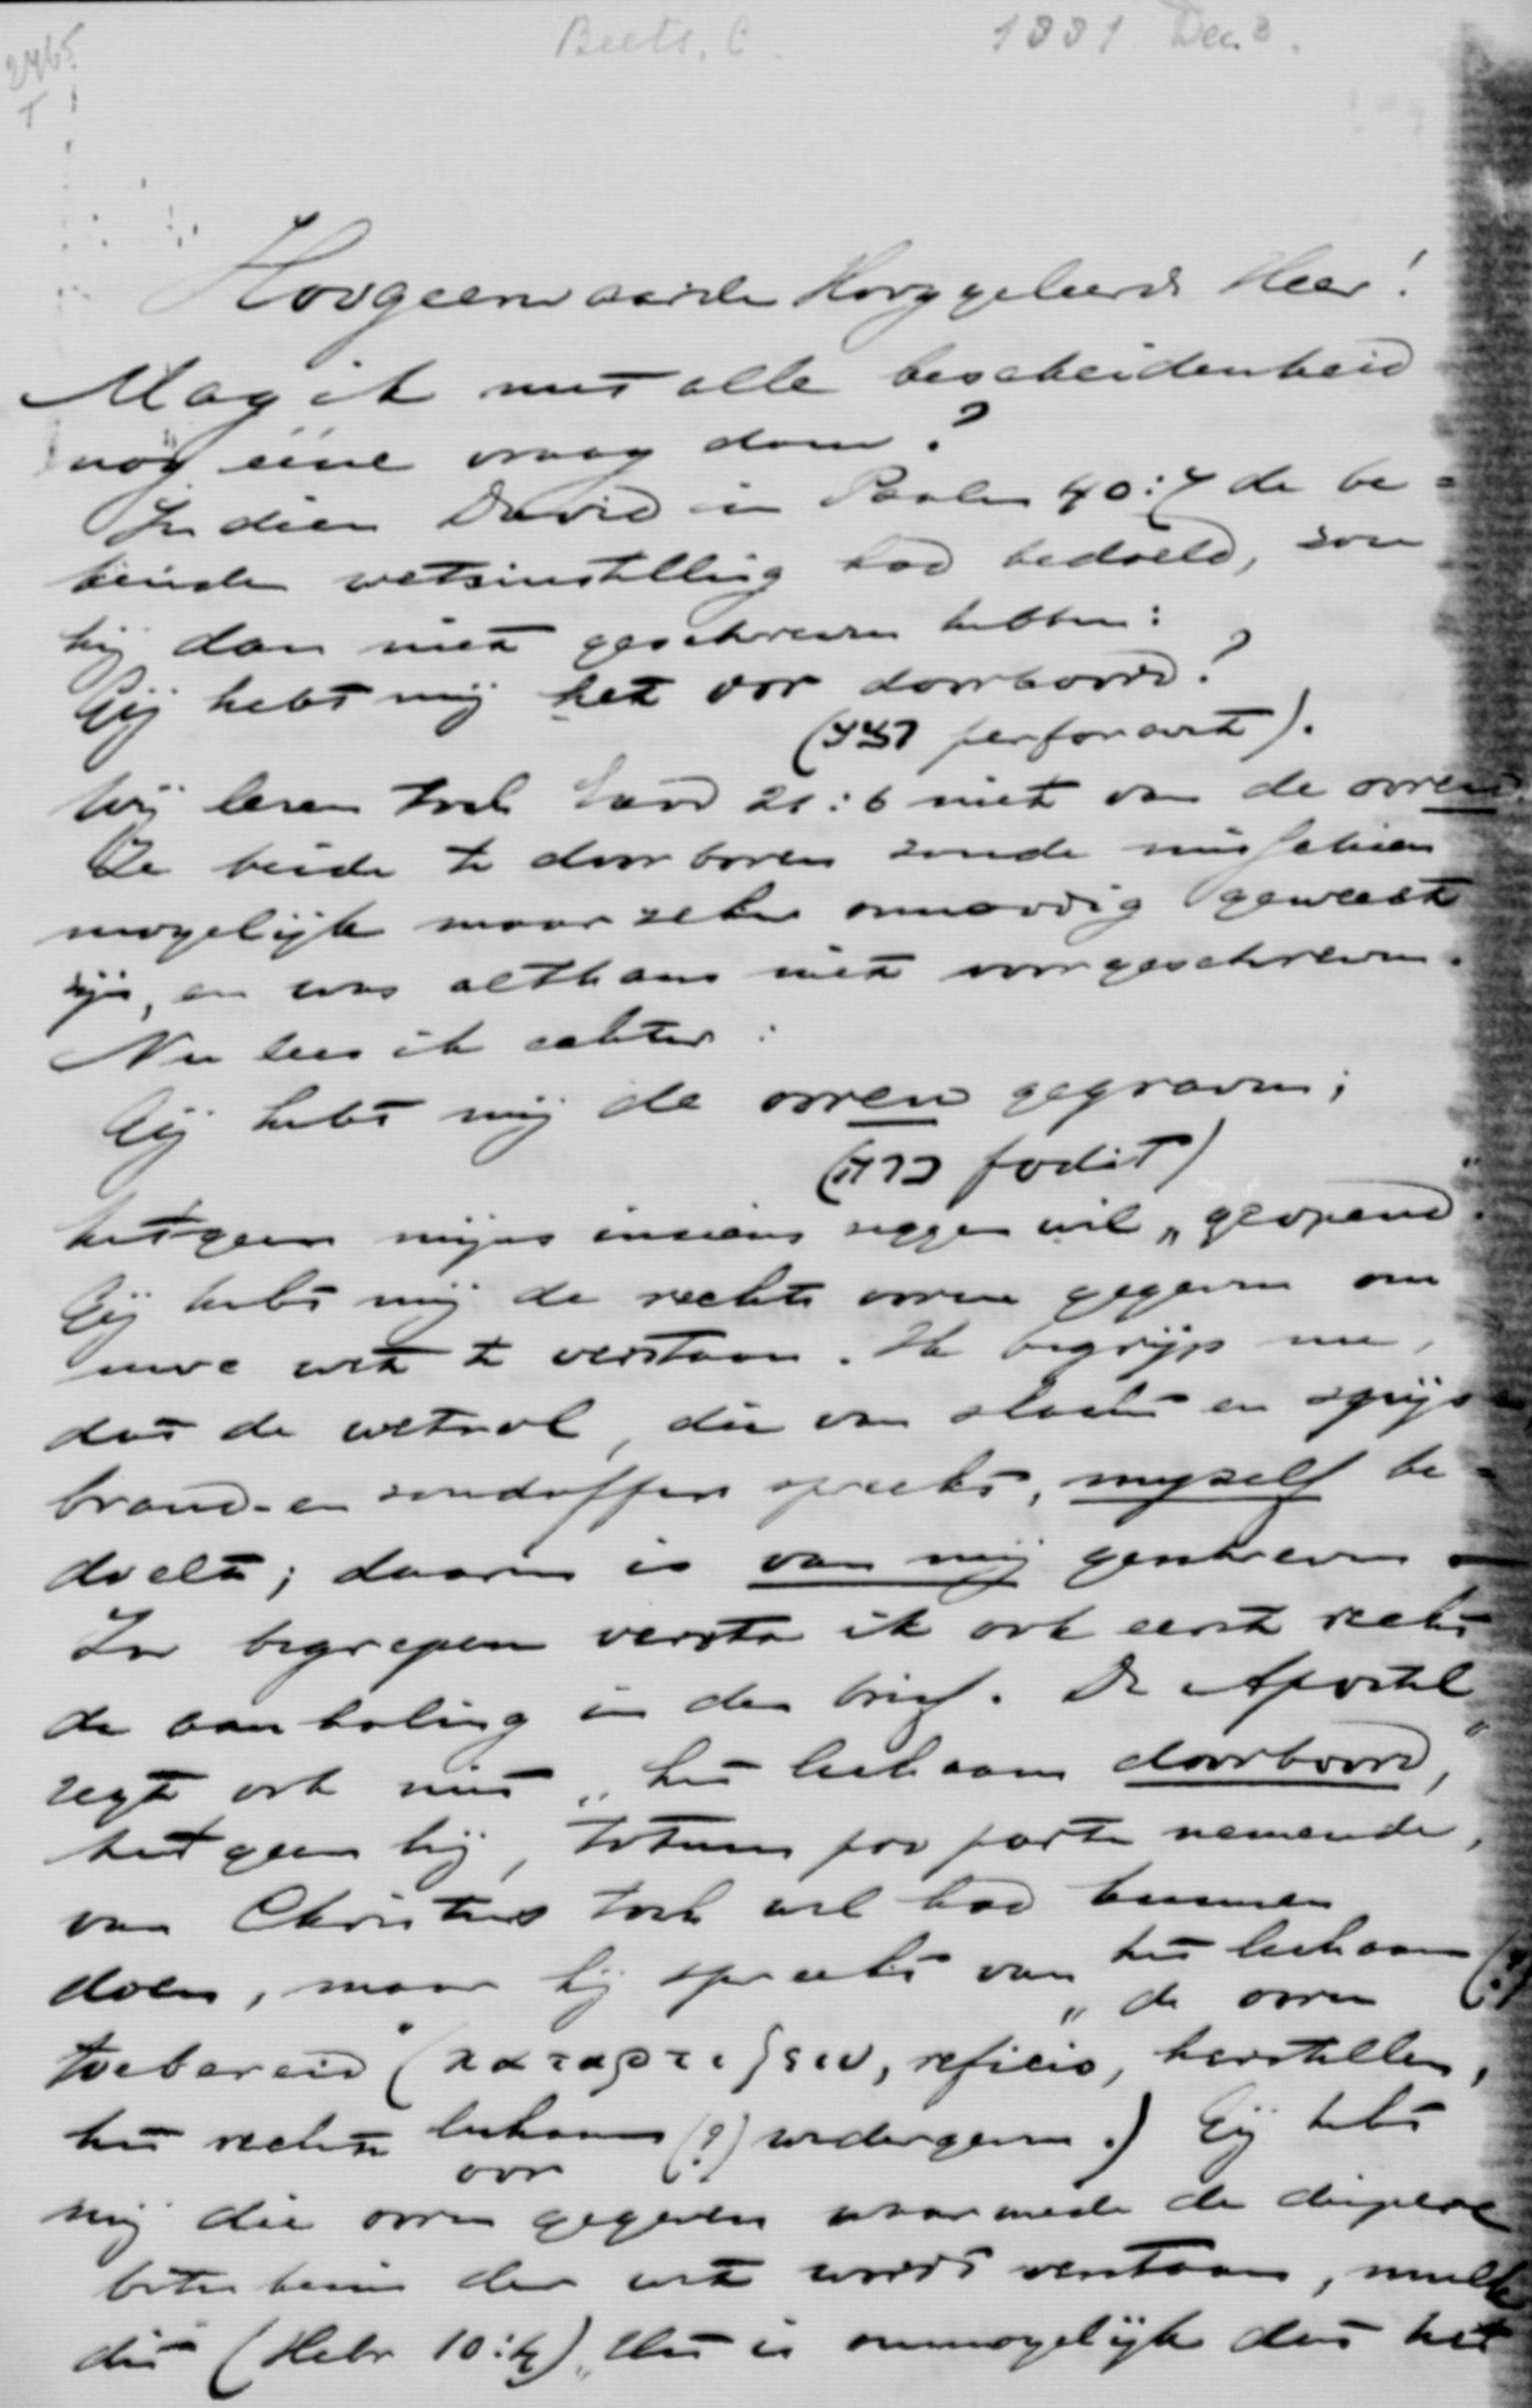 2465
Beets, C. 1881 Dec. 3.
Hoogeerwaarde Hooggeleerde Heer!
Mag ik met alle bescheidenheid
nog eene vraag doen?
Indien David in Psalm 40:7 de be-
kende wetsinstelling had bedoeld, zou
hij dan niet geschreven hebben:
Gij hebt mij het oor doorboord?
(רצע perforavit).
Wij lezen toch Exod 21:6 niet van de ooren.
Ze beide te doorboren zoude misschien
mogelijk maar zeker onnoodig geweest
zijn, en was althans niet voorgeschreven.
Nu lees ik echter:
Gij hebt mij de ooren gegraven;
(כרה fodit)
hetgeen mijns inziens zeggen wil „geopend."
Gij hebt mij de rechte ooren gegeven om
uwe wet te verstaan. Ik begrijp nu,
dat de wetrol, die van slacht- en spijs-
brand- en zondoffers spreekt, myself be-
doelt; daarin is van mij geschreven
Zoo begrepen versta ik ook eerst recht
de aanhaling in den brief. De Apostel
zegt ook niet „het lichaam doorboord,"
hetgeen hij, totum pro parte nemende,
van Christus toch wel had kunnen
doen, maar hij spreekt van het lichaam (?)
„de ooren
toebereid" (καταρτιζειν, reficio, herstellen,
het rechte lichaam (?) wedergeven.) Gij hebt
oor
mij die ooren gegeven waarmede de diepere
beteekenis der wet wordt verstaan,
dit (Hebr 10:4) „Het is onmogelijk dat het